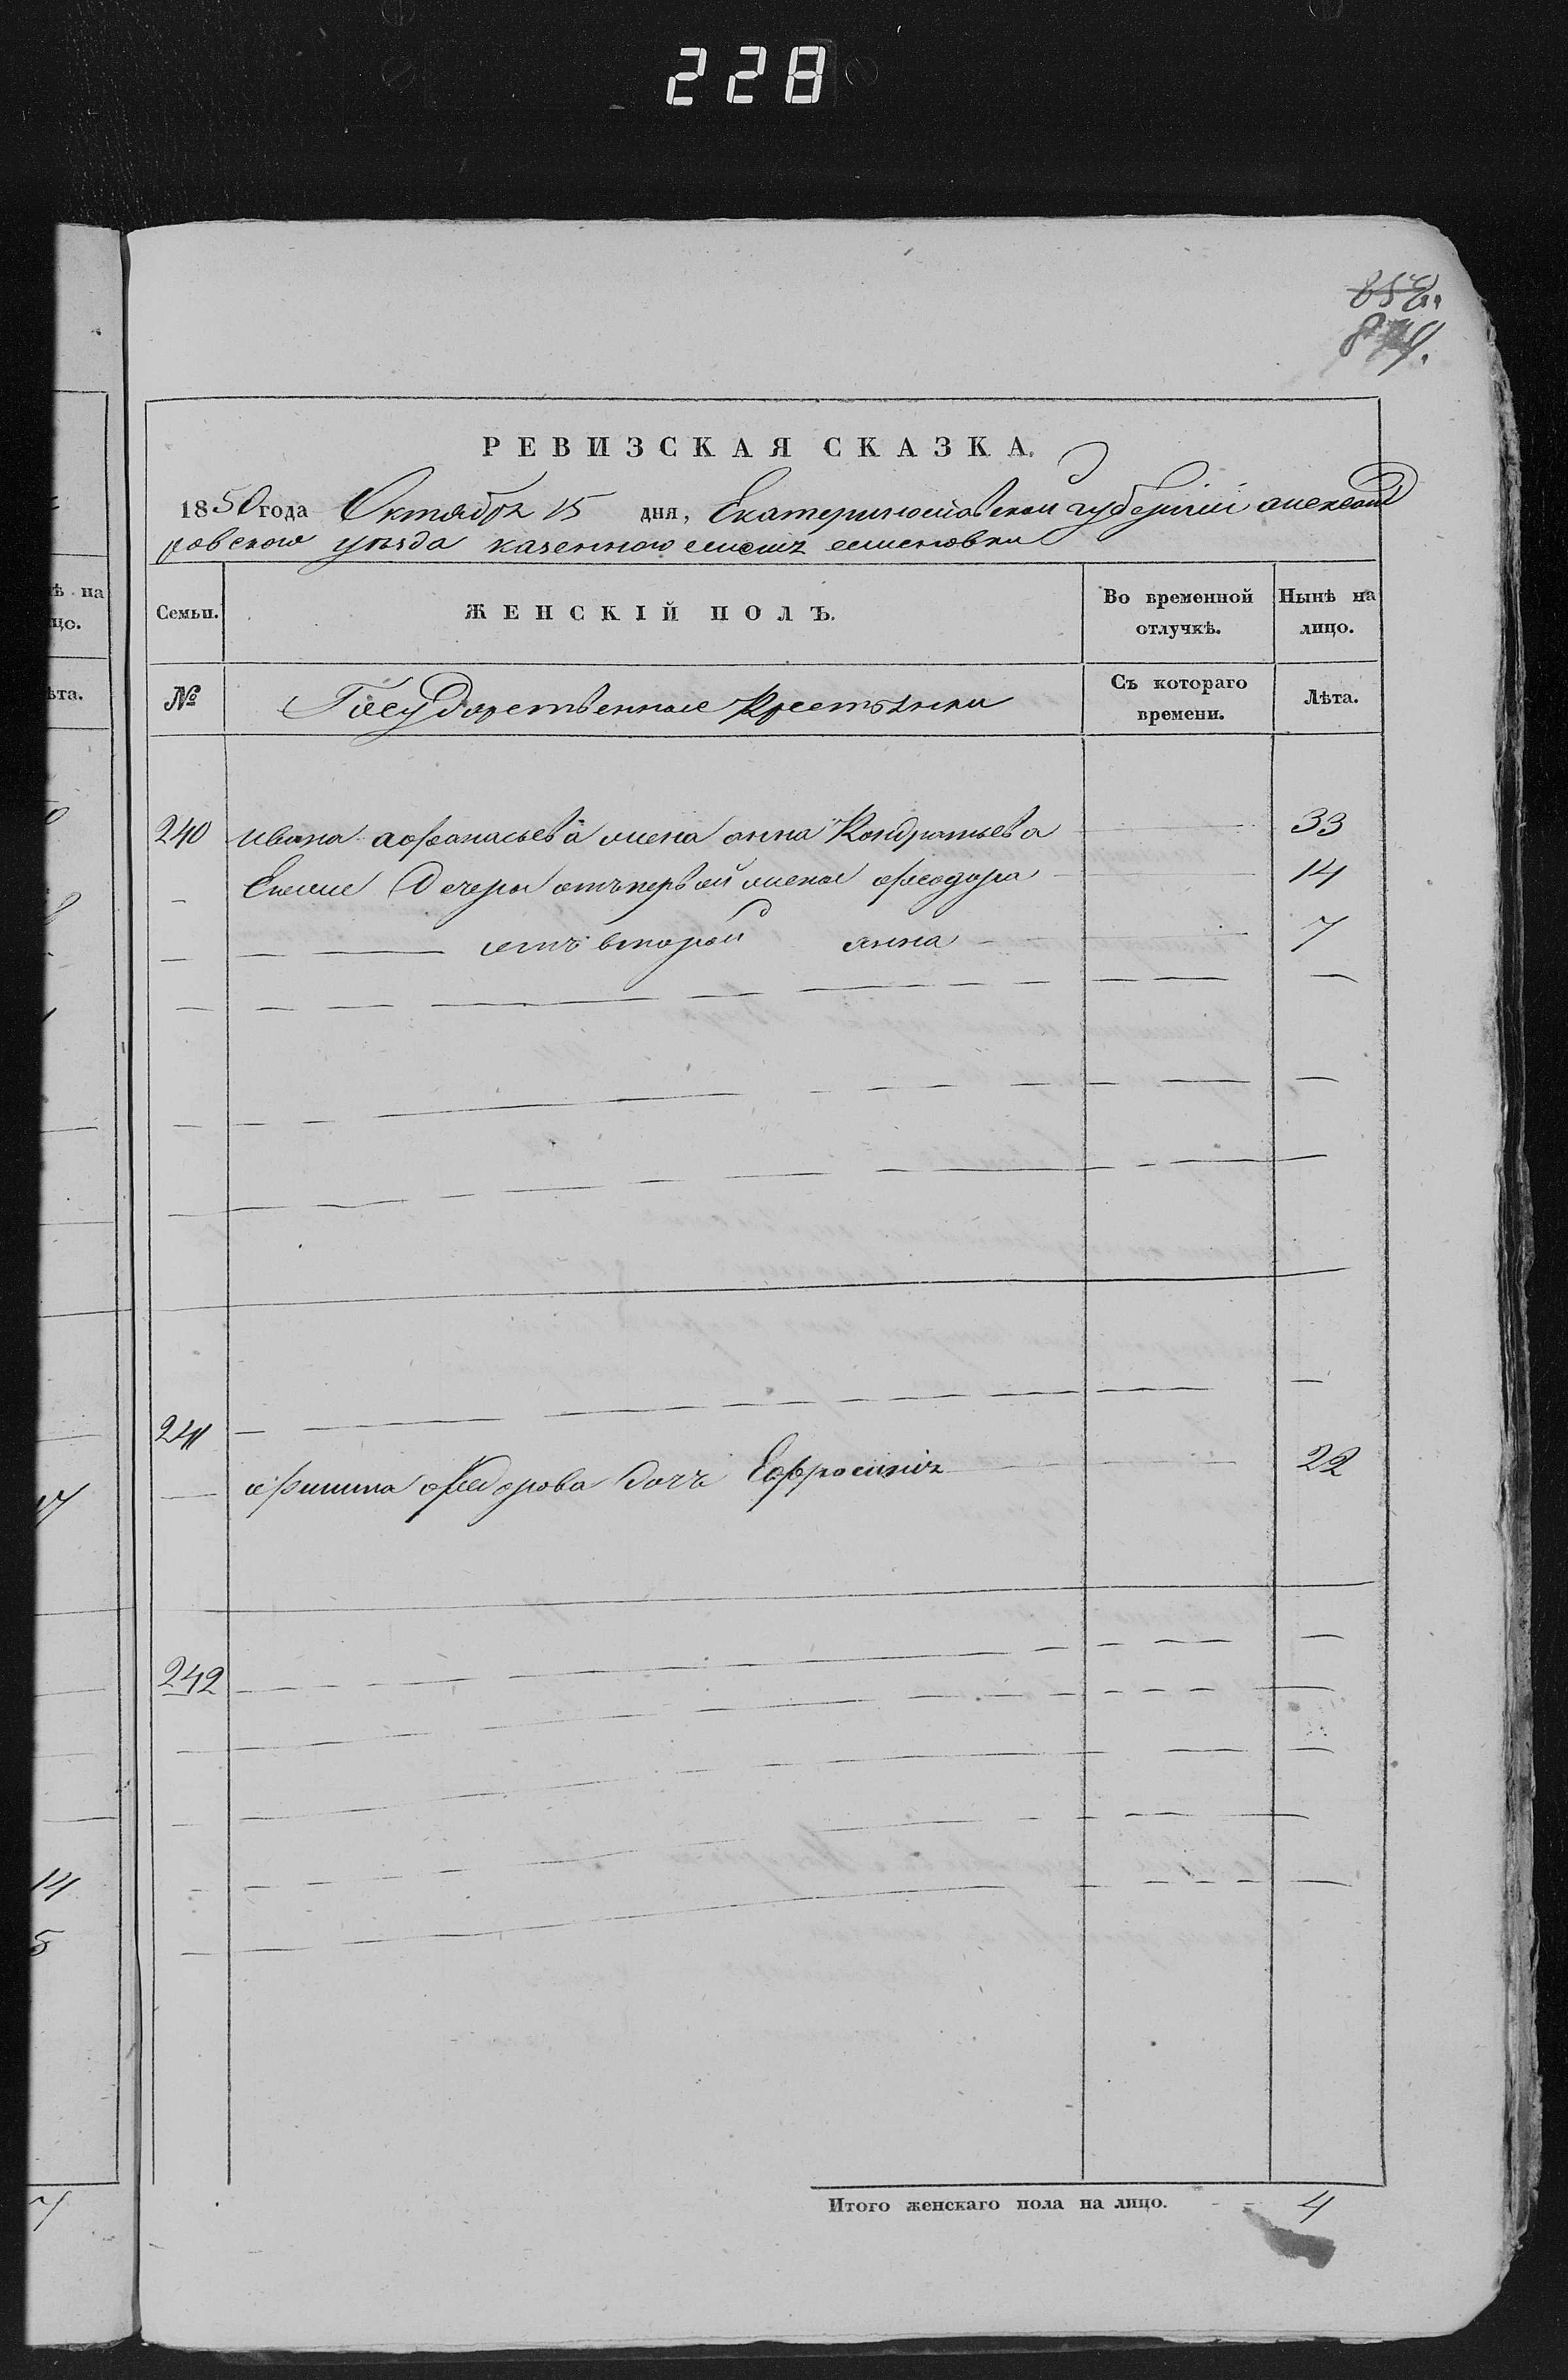 228
858.
РЕВИЗСКАЯ СКАЗКА.
1850 года Октября 15 дня, Екатеринославской губернiи александ
ровского уезда казенного селенiя
Семьи. ЖЕНСКІЙ ПОЛЪ. Во временной отлучкѣ. Нынѣ на лицо.
№ Государственные Крестьянки Съ котораго времени. Лѣта.
240 ивана афанасьева жена анна Кондратьева 33
Ево же Дочери отъ первой жены феодора 14
отъ второй анна 7
241
филипа федорова дочь Ефросинiя 22
242
Итого женскаго пола на лицо. 4
ѣ на
цо.
ѣта.
17
14
5
7